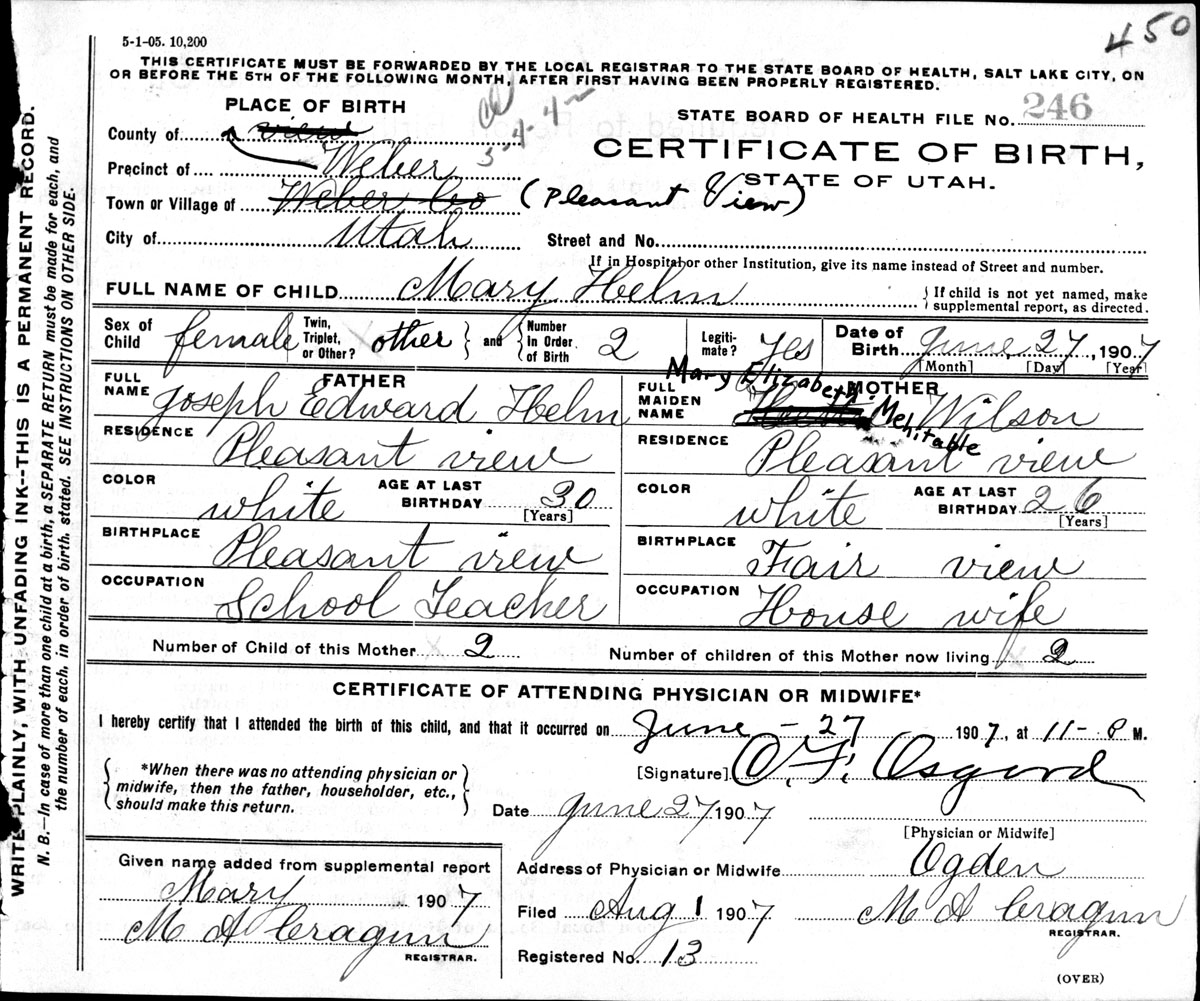 450
5-1-05. 10,200
THIS CERTIFICATE MUST BE FORWARDED BY THE LOCAL REGISTRAR TO THE STATE BOARD OF HEALTH, SALT LAKE CITY, ON
OR BEFORE THE 5TH OF THE FOLLOWING MONTH, AFTER FIRST HAVING BEEN PROPERLY REGISTERED.
PLACE OF BIRTH
STATE BOARD OF HEALTH FILE NO. 246
County of view
CERTIFICATE OF BIRTH,
Precinct of Weber
STATE OF UTAH.
Town or Village of Weber Co (Pleasant View)
City of Utah Street and No.
If in Hospital or other Institution, give its name instead of Street and number.
FULL NAME OF CHILD Mary Helm } If child is not yet named, make
supplemental report, as directed.
Sex of Child female Twin, Triplet, or Other? other } and { Number In Order of Birth 2 Legiti- mate? Yes Date of Birth June 27, 1907
[Month] [Day] [Year]
FATHER MOTHER
FULL NAME Joseph Edward Helm FULL MAIDEN NAME Mary Elizabeth Mehitable Wilson
RESIDENCE Pleasant view RESIDENCE Pleasant view
COLOR white AGE AT LAST BIRTHDAY 30 [Years] COLOR white AGE AT LAST BIRTHDAY 26 [Years]
BIRTHPLACE Pleasant view BIRTHPLACE Fair view
OCCUPATION School Teacher OCCUPATION House wife
Number of Child of this Mother 2 Number of children of this Mother now living 2
CERTIFICATE OF ATTENDING PHYSICIAN OR MIDWIFE*
I hereby certify that I attended the birth of this child, and that it occurred on June - 27 1907, at 11- P M.
{ *When there was no attending physician or midwife, then the father, householder, etc., should make this return. }
[Signature] O. F. Osgood
Date June 27 1907
[Physician or Midwife]
Given name added from supplemental report
Address of Physician or Midwife Ogden
Mary 1907
Filed Aug 1 1907 M A Cragun
REGISTRAR.
M A Cragun
REGISTRAR.
Registered No. 13
(OVER)
WRITE PLAINLY, WITH UNFADING INK--THIS IS A PERMANENT RECORD.
N. B.—In case of more than one child at a birth, a SEPARATE RETURN must be made for each, and
the number of each, in order of birth, stated. SEE INSTRUCTIONS ON OTHER SIDE.